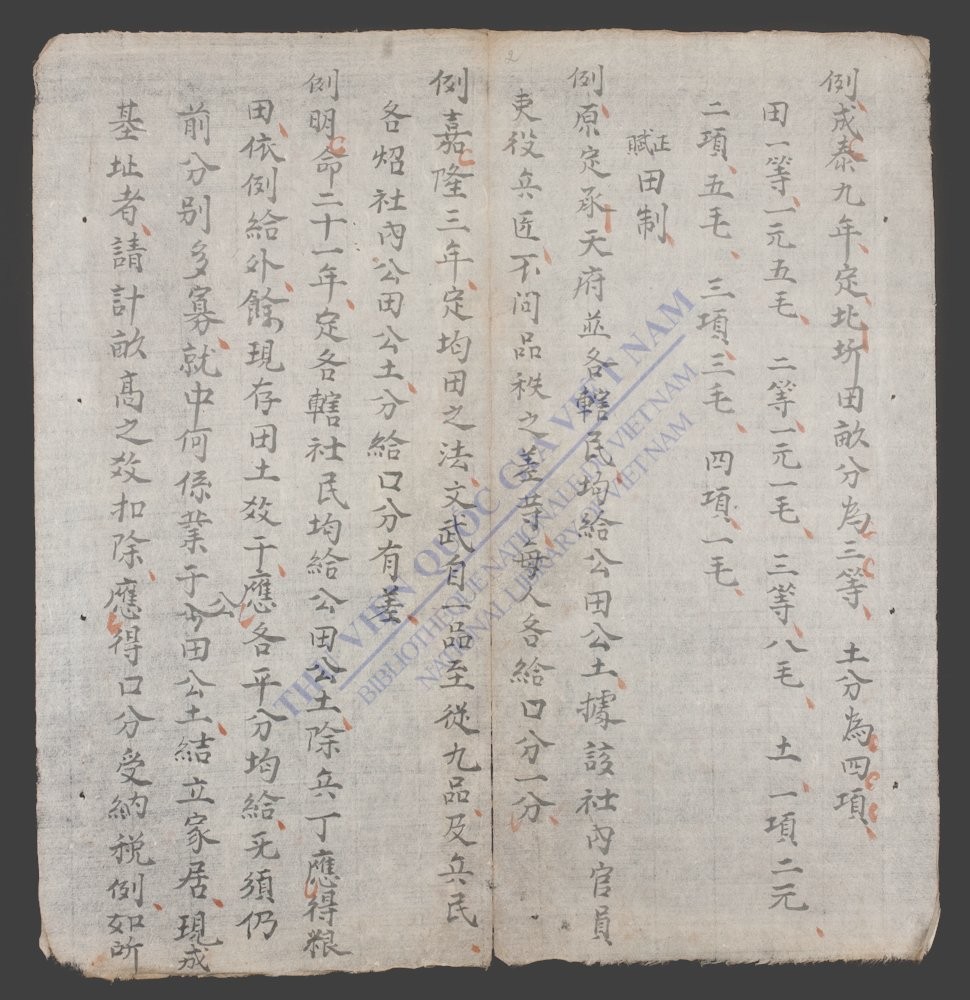 例成泰九年定北圻田畝分為三等 土分為四項
田一等一元五毛 二等一元一毛 三等八毛 土一項二元
二項五毛 三項三毛 四項一毛
正賦田制
例原定承天府並各轄民均給公田公土據該社內官員
吏役兵匠不問品秩之差等每人各給口分一分
例嘉隆三年定均田之法文武自一品至從九品及兵民
各炤社內公田公土分給口分有差
例明命二十一年定各轄社民均給公田公土除兵丁應得粮
田依例給外餘現存田土效干應各平分均給旡須仍
前分别多寡就中何係業于公田公土結立家居現成
基址者請計畝高之效扣除應得口分受納稅例如所
2
THƯ VIỆN QUỐC GIA VIỆT NAM
BIBLIOTHEQUE NATIONALE DU VIETNAM
NATIONAL LIBRARY OF VIETNAM